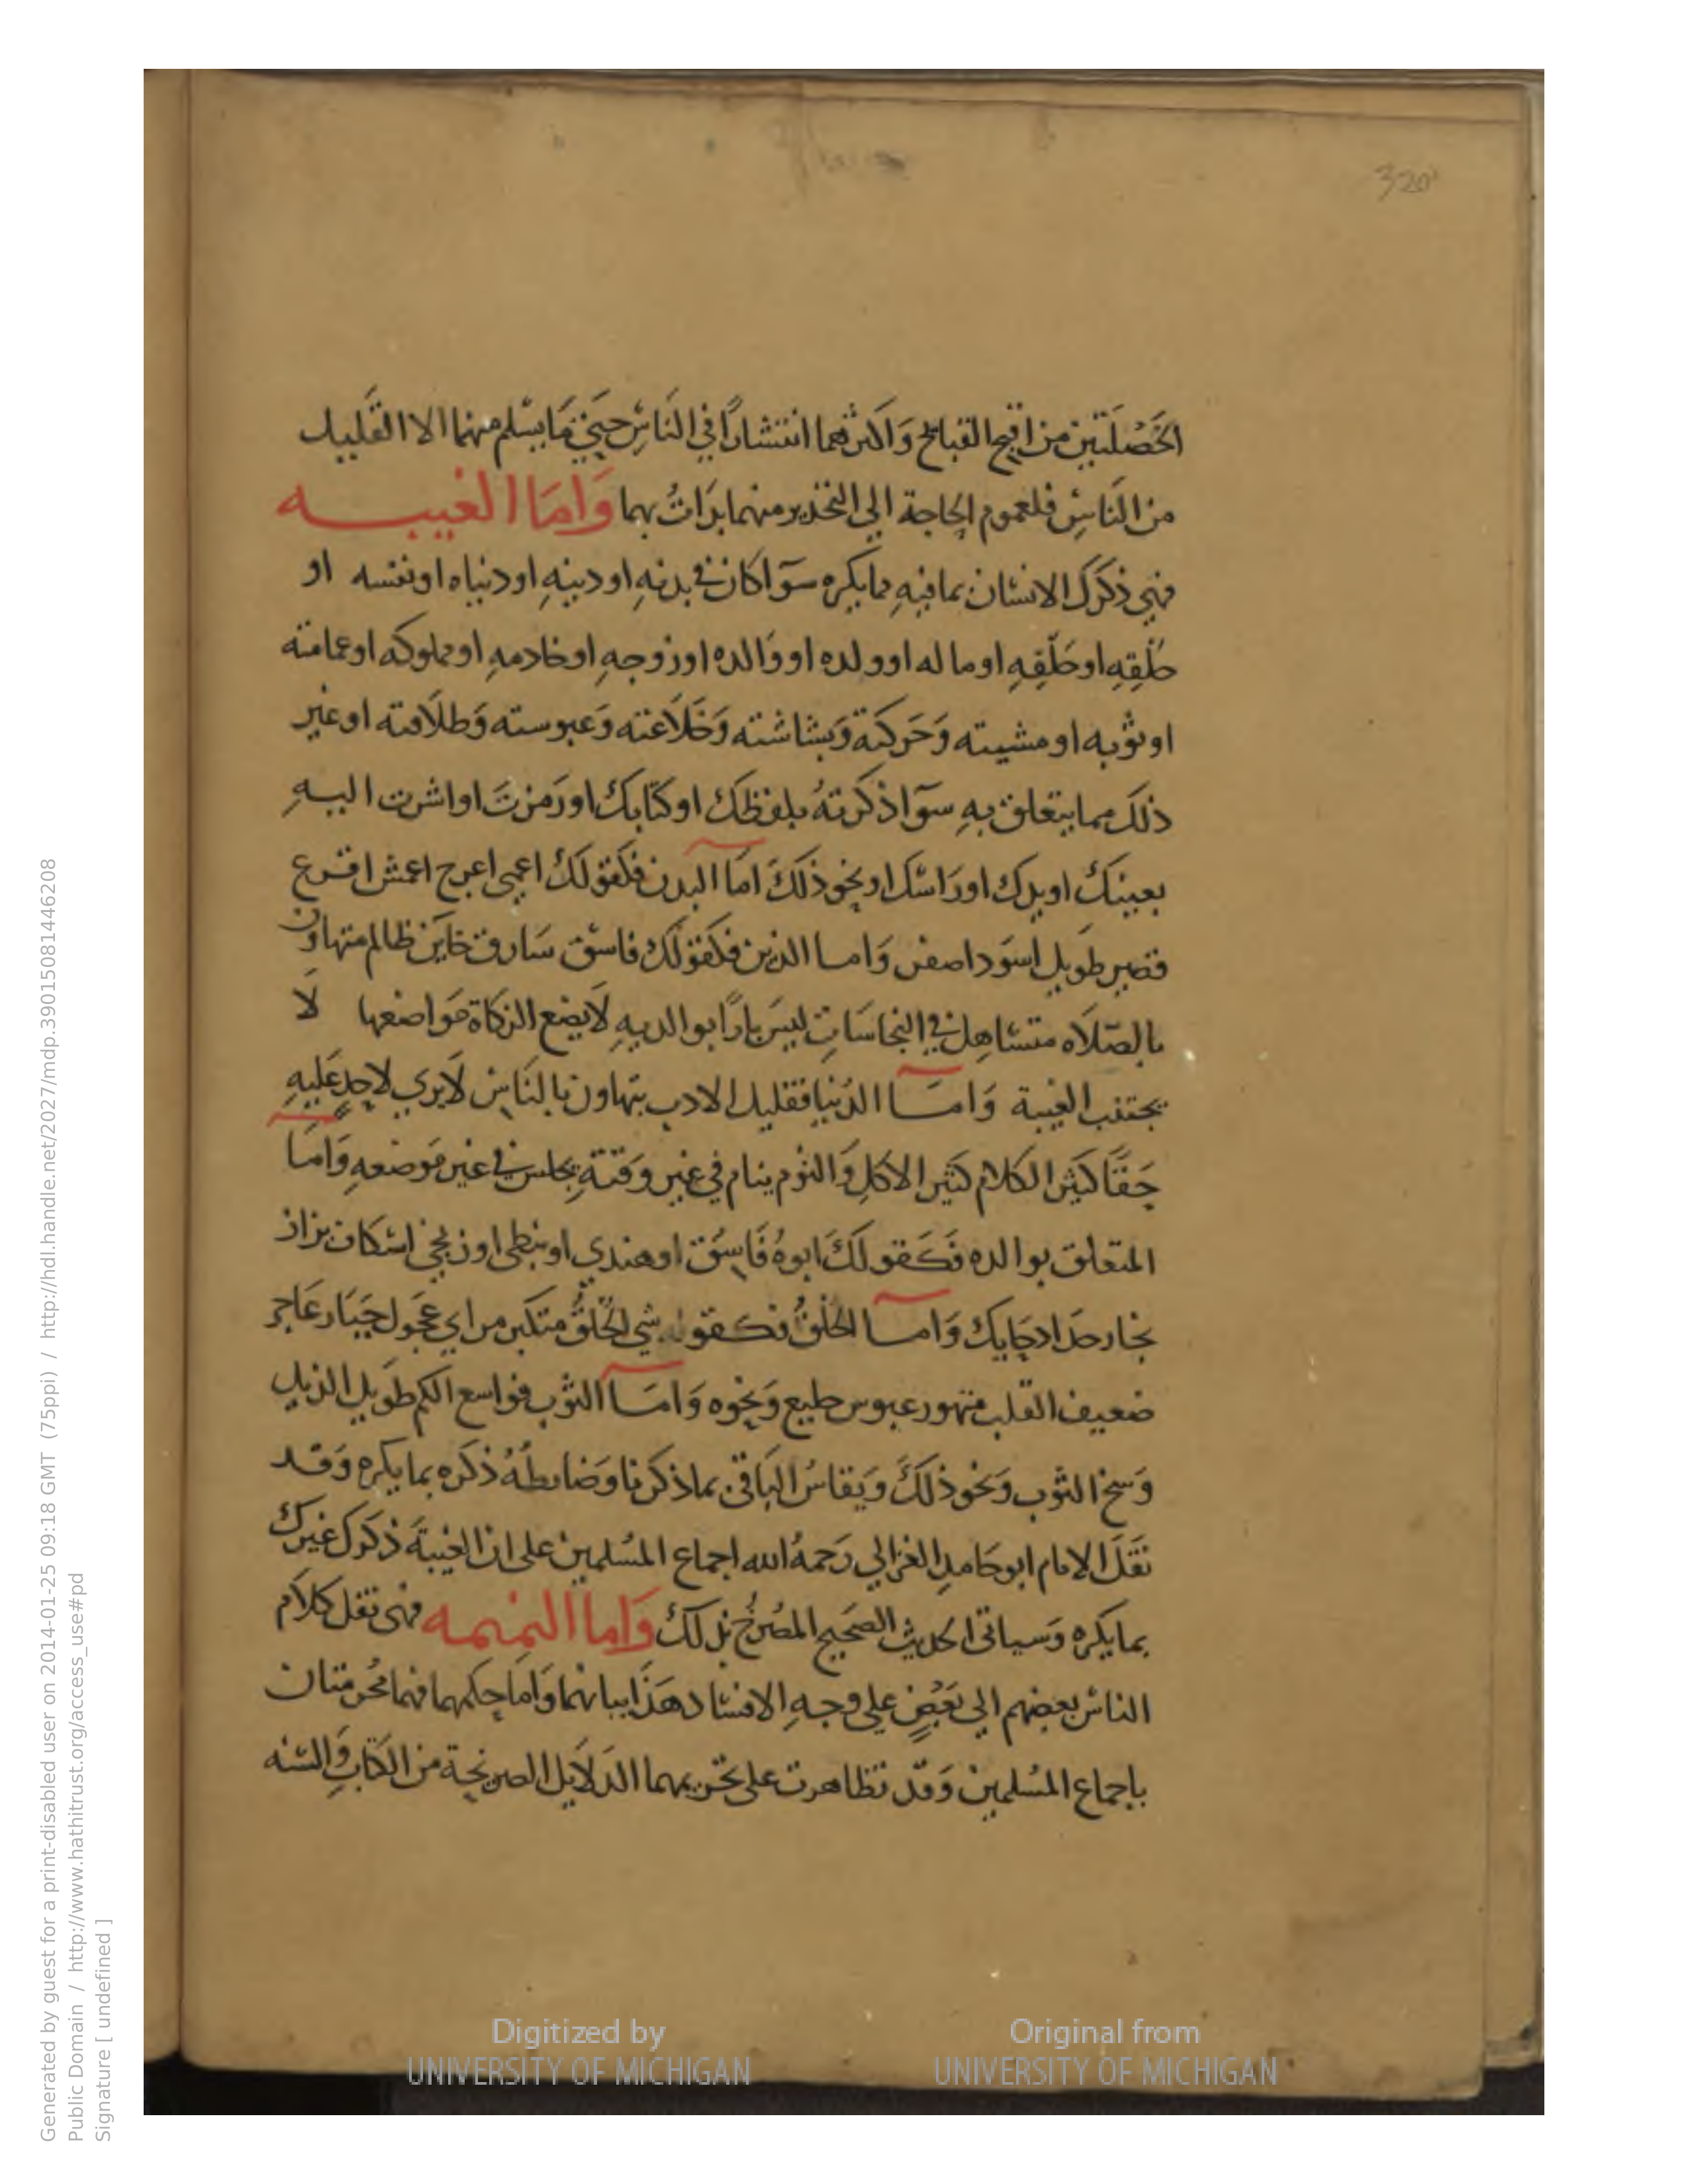 320
الخَصْلَتين من اقبح القبائح وَاكثرهما انتشارًا في النَاسِ حتي مَا يسْلم منهما الا القَليل
من النَاسِ فلعموم الحاجة الي التحذير منهما بدَاتُ بهما وَامَا الغيبه
فهي ذكرَك الانسَان بما فيهِ مما يكره سوَآ كان في بدنهِ او دينهِ او دنياه او نفسه او
خَلْقِهِ او خُلُقِهِ او ماله او ولده او وَالده او زوجهِ او خادمهِ او مملوكه او عمامته
او ثوبه او مشيته وَحَركَتة وَبشاشته وَخَلَاعته وَعبوسته وَطلَاقته او غير
ذلكَ مما يتعلق بهِ سوَآ ذكرتهُ بلفظكَ او كتابكَ او رَمزتَ او اشرت اليهِ
بعينكَ او يدك او رَاسَك او نحو ذلكَ امَا البدن فكَقولكَ اعمي اعرج اعمش اقرع
قصير طَويل اسوَد اصفر وَاما الدين فكقولكَ فاسق سَارق خاين ظالم متهاون
بالصَلَاه متسَاهل في النجاسَات ليسَ بارًا بوالديهِ لَا يضع الزكاة مَواضعها لَا
يجتنب الغيبة وَامَا الدُنيا فقليل الادب يتهاون بالنَاس لَا يري لاحدٍ عَليهِ
حَقًا كثير الكلام كثير الاكلِ وَالنوم ينام في غير وَقتهِ يجلس في غير مَوضعهِ وَامَا
المتعلق بوالده فَكَقولكَ ابوهُ فَاسِق او هندي او نبطي او زنجي اسكاف بزاز
نجار حدَاد حَايك وَاما الخلقُ فكقوله سَي الخُلقُ متكبر مراي عَجول جَبَار عَاجز
ضعيف القلب متهور عبوس خليع وَنحوه وَامَا الثوب فواسع الكم طَويل الذيل
وَسخ الثوب وَنحو ذلكَ وَيقاسُ البَاقي بما ذكرنا وَضابطهُ ذكره بما يكره وَقد
نقَلَ الامام ابو حَامد الغزالي رَحمهُ الله اجماع المسُلمين على ان الغيبَة ذكرَك غيرك
بما يكره وَسياتي الحديث الصَحيح المصُرح بذلكَ وَاما النميمه فهى نقل كلَام
الناسْ بعضهم الي بَعْضٍ علي وجهِ الافسَاد هَذَا بيانهما وَامَا حكمهما فهما مُحرمتان
باجماع المسُلمين وَقد تظاهرت على تحريمهما الدَلَايل الصريحة من الكتابِ وَالسنه
Digitized by
UNIVERSITY OF MICHIGAN
Original from
UNIVERSITY OF MICHIGAN
Generated by guest for a print-disabled user on 2014-01-25 09:18 GMT (75ppi) / http://hdl.handle.net/2027/mdp.39015081446208
Public Domain / http://www.hathitrust.org/access_use#pd
Signature [ undefined ]